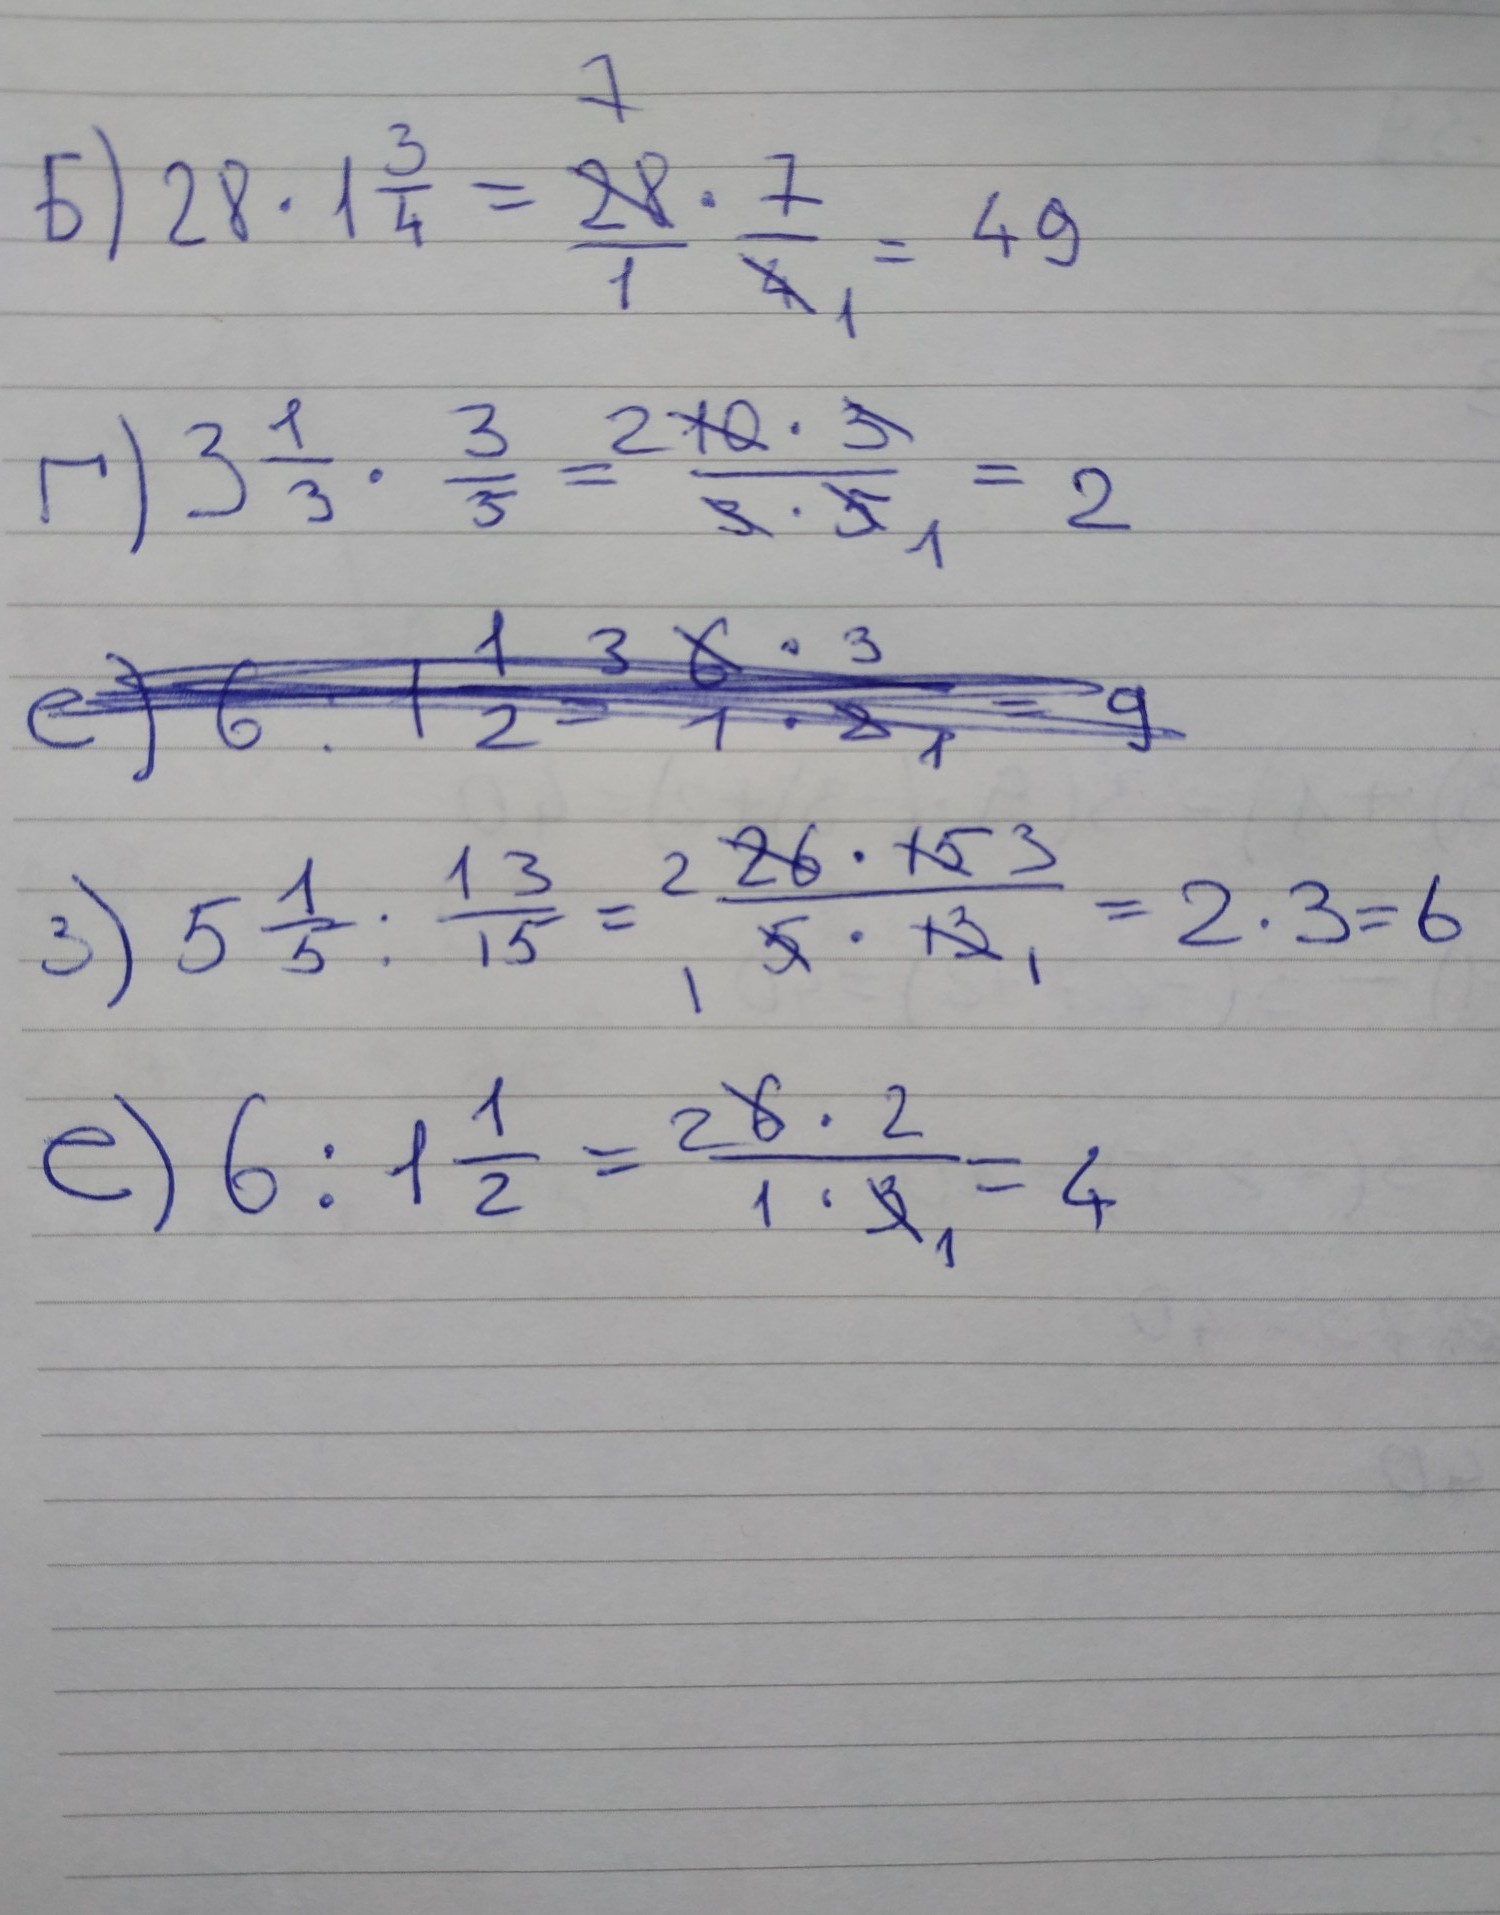 Б) 28 · 1 3/4 = 28/1 · 7/4 = 49 7 1
г) 3 1/3 · 3/5 = 2 10 · 3 / 3 · 5 1 = 2
е) 6 : 1 1/2 = 3 6 · 3 / 1 · 2 1 = 9
з) 5 1/5 : 13/15 = 2 26 · 15 3 / 1 5 · 13 1 = 2 · 3 = 6
е) 6 : 1 1/2 = 2 6 · 2 / 1 · 3 1 = 4